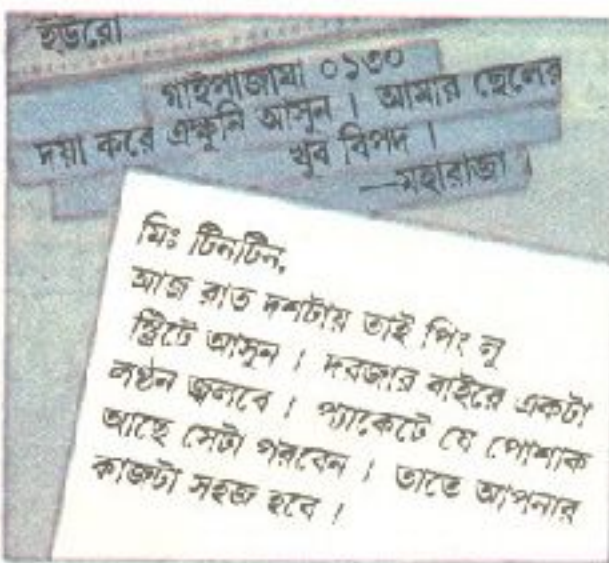 ইউরো
গাইপাজামা ০১৩০
দয়া করে এক্ষুনি আসুন । আমার ছেলের
খুব বিপদ ।
—মহারাজা ।
মিঃ টিনটিন,
আজ রাত দশটায় তাই পিং লু
স্ট্রিটে আসুন । দরজার বাইরে একটা
লণ্ঠন জ্বলবে । প্যাকেটে যে পোশাক
আছে সেটা পরবেন । তাতে আপনার
কাজটা সহজ হবে ।